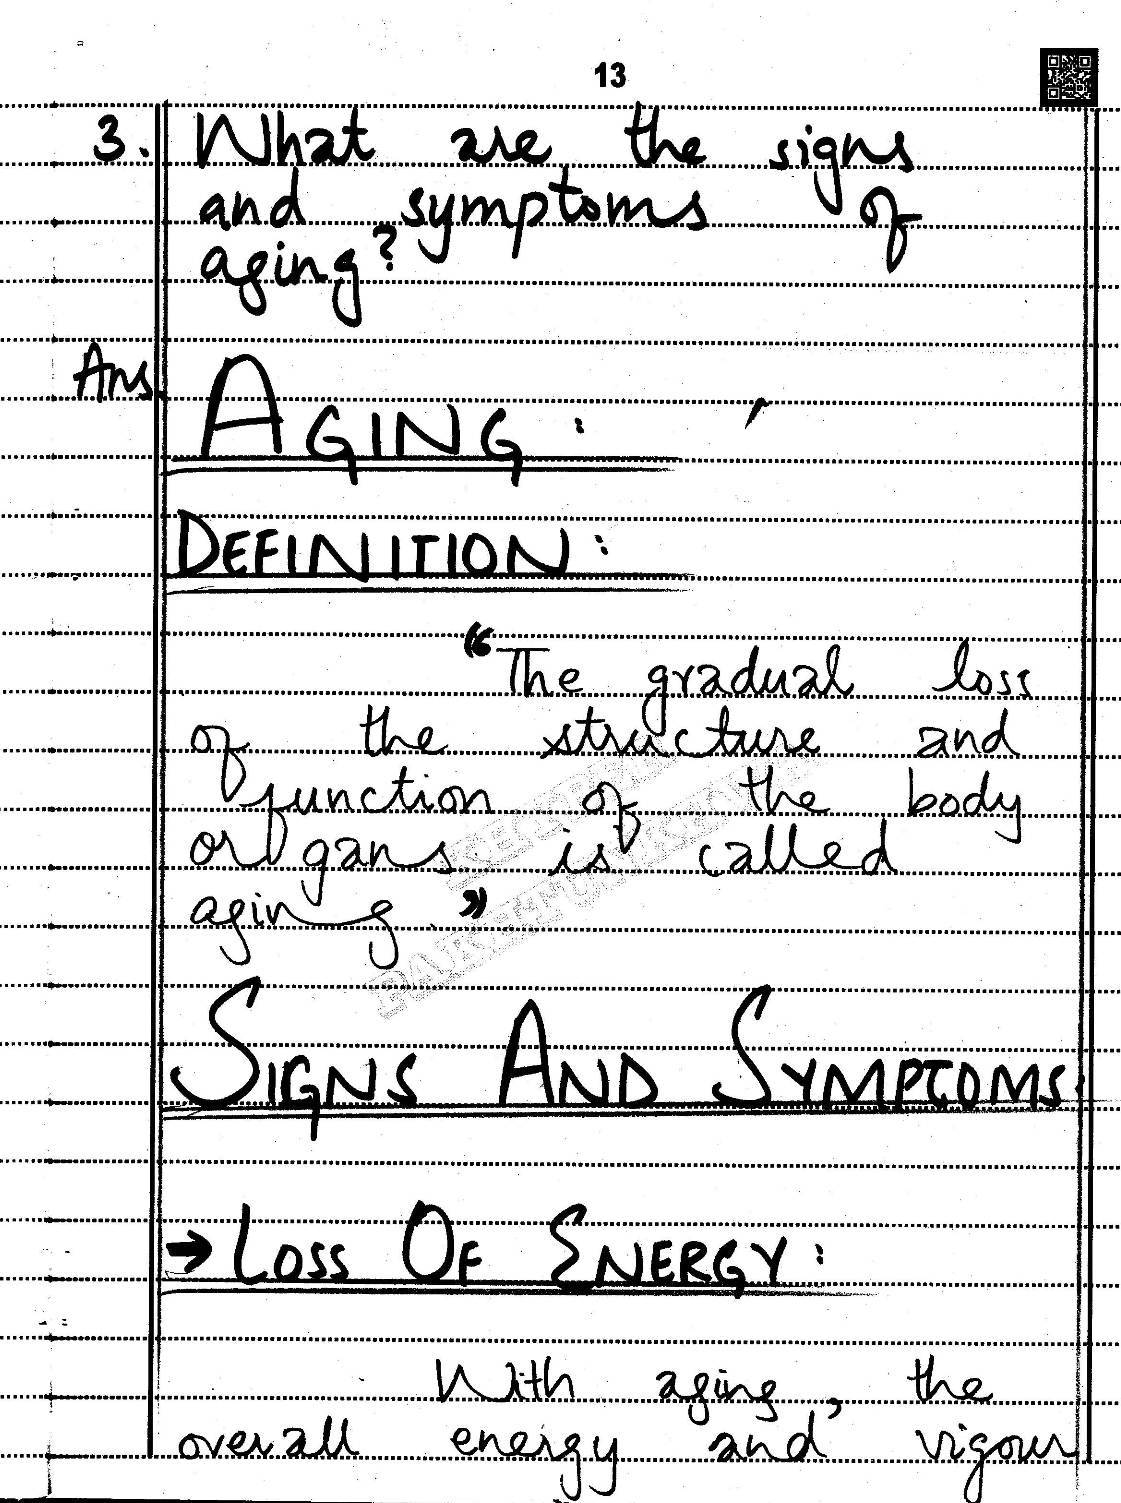 13
3. What are the signs
and symptoms of
aging?
Ans. AGING:
DEFINITION:
“The gradual loss
of the structure and
function of the body
organs is called
aging.”
SIGNS AND SYMPTOMS:
→ LOSS OF ENERGY:
With aging, the
overall energy and vigour